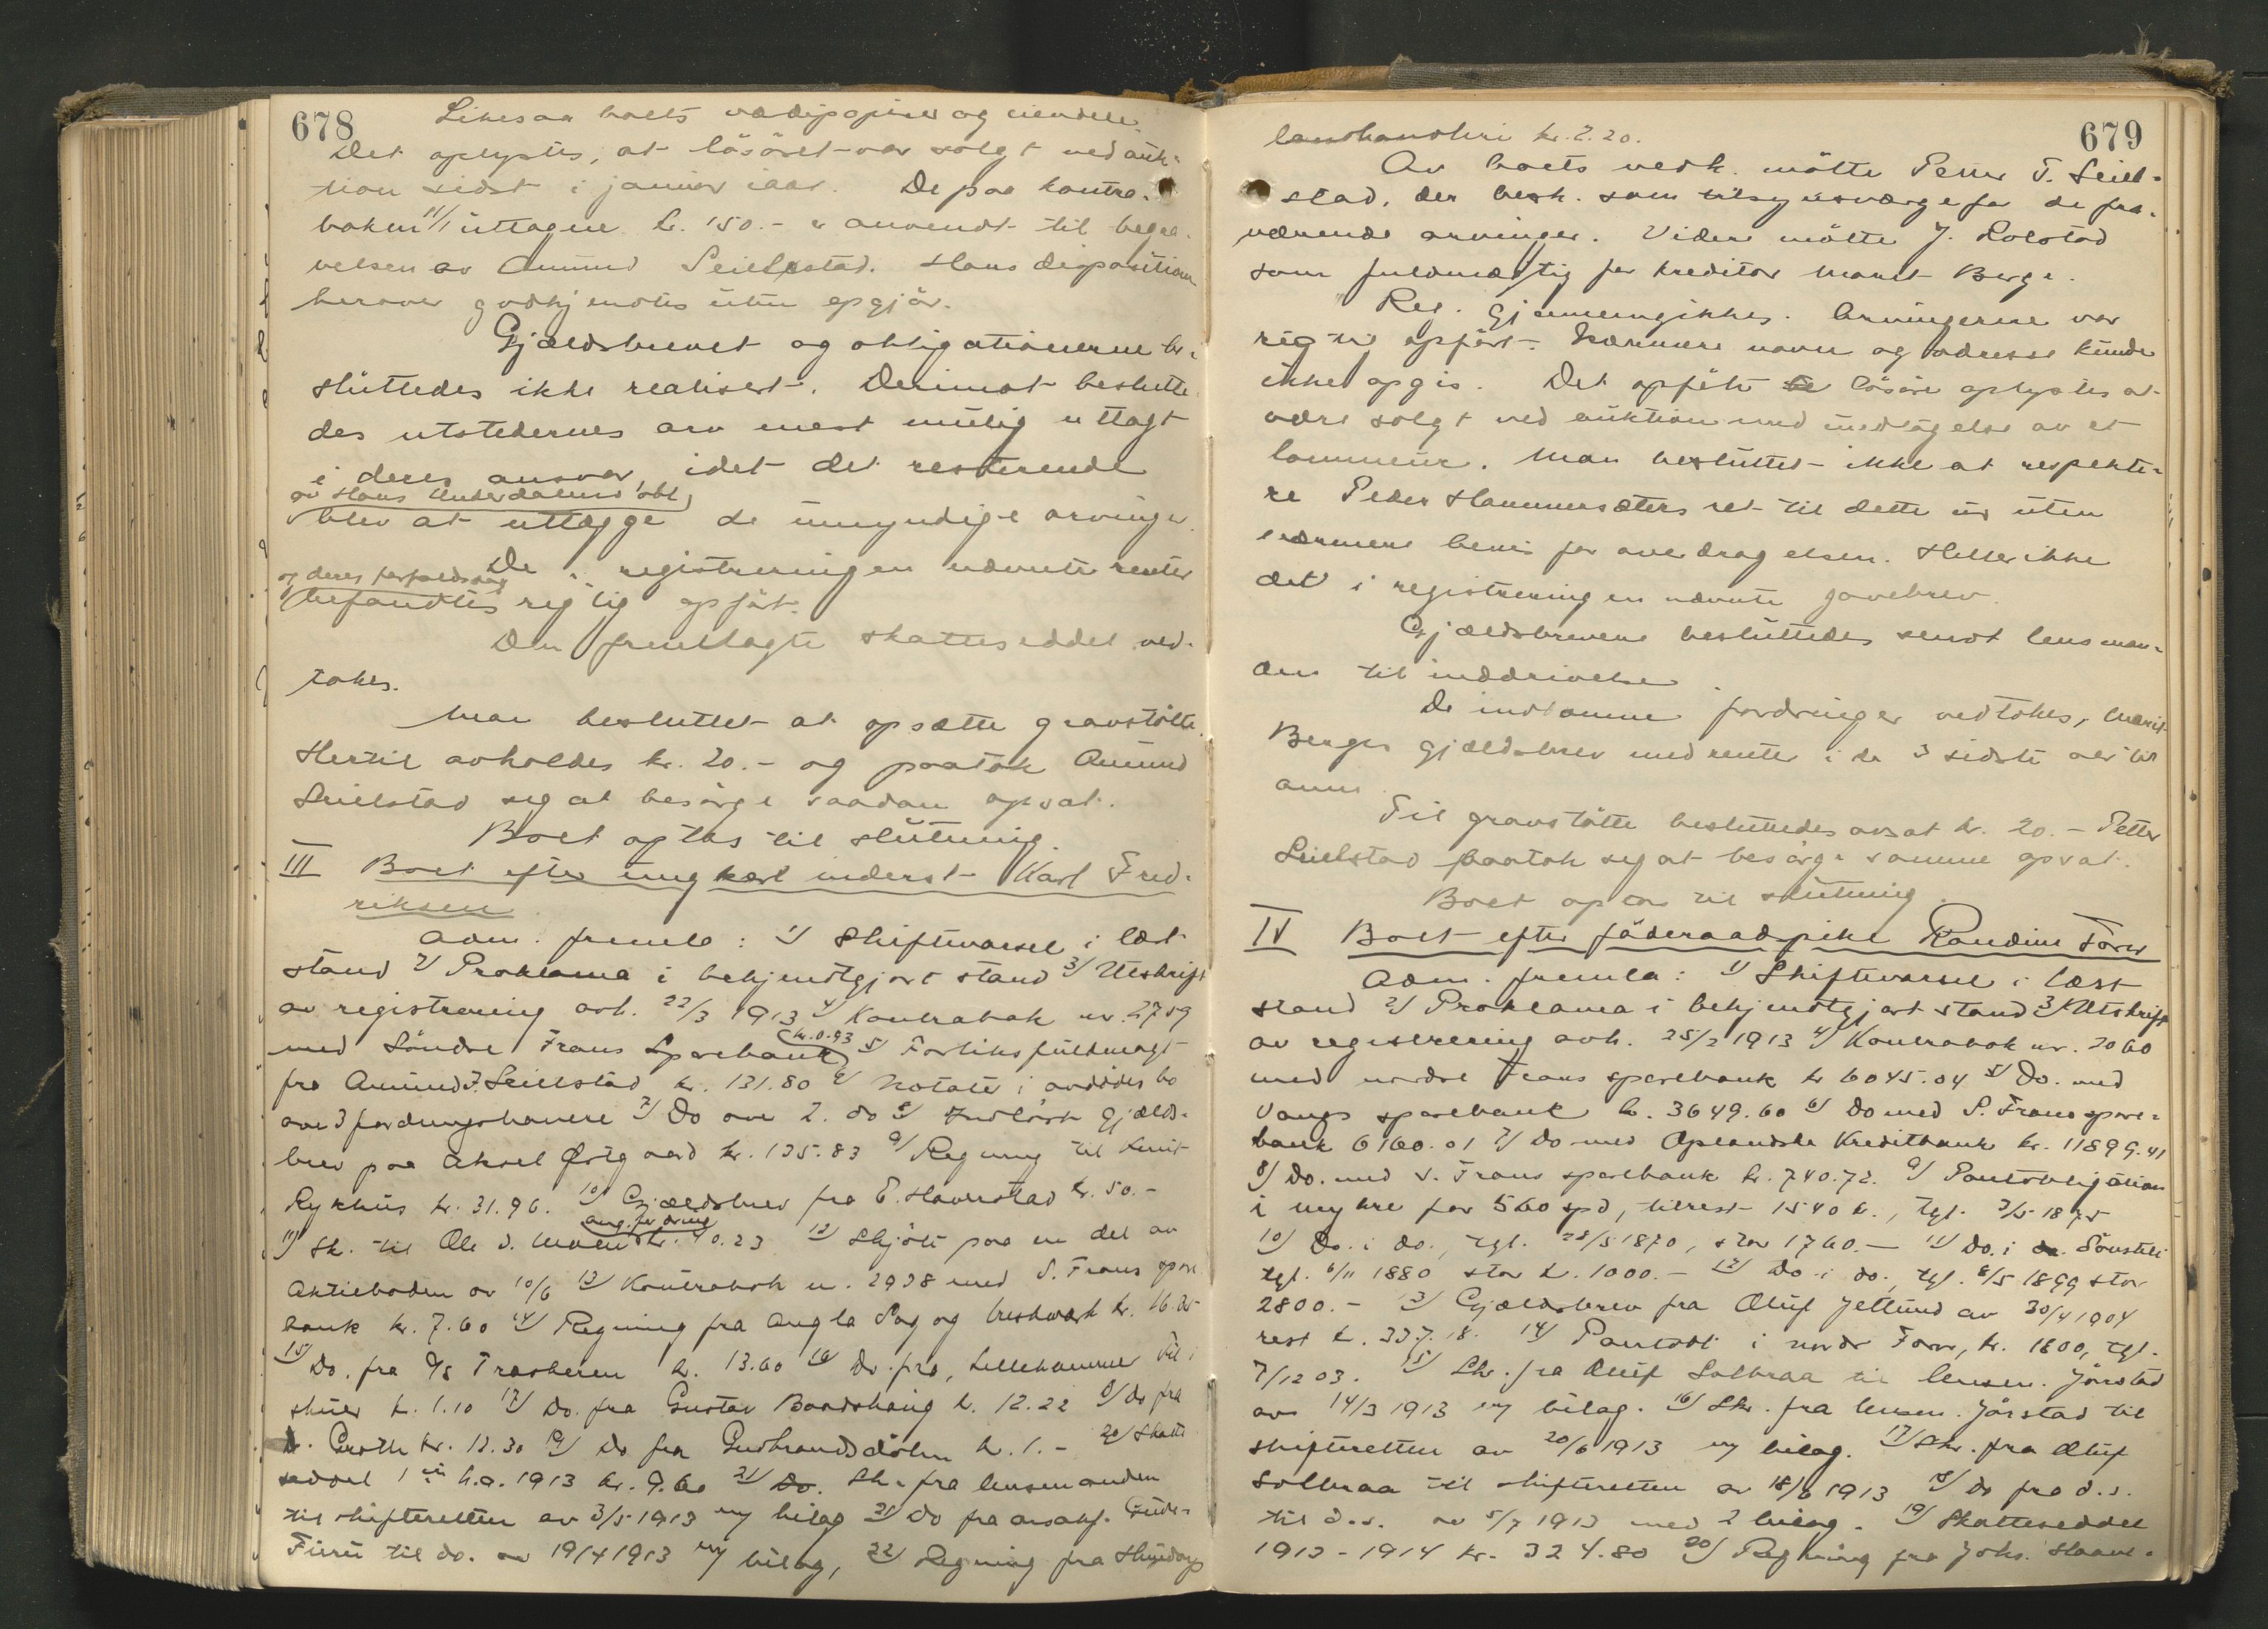 678
Likesaa boets værdipapirer og eiendele.
Det oplystes, at lösöret var solgt ved auk-
tion sidst i januar iaar. De paa kontra-
boken 11/1 uttagne kr. 150.- er anvendt til begra-
velsen av Amund Seielstad. Hans disposition
herover godkjendtes uten opgjör.
Gjældsbrevet og obligationerne be-
sluttedes ikke realisert. Derimot beslutte-
des utstedernes arv mest mulig uttagt
i deres ansvar idet det resterende
av Hans Underdalens obl.
blev at utlægge de umyndige arvinger.
De i registreringen nævnte renter
og deres forfaldsdag
befandtes rigtig opfört.
Den fremlagte skatteseddel ved-
tokes.
Man besluttet at opsætte gravstötte.
Hertil avholdes kr. 20.- og paatok Amund
Seielstad sig at besörge saadan opsat.
Boet optas til slutning.
III Boet efter ungkarl inderst Karl Fred-
riksen.
Adm. fremla: 1/ Skiftevarsel i læst
stand 2/ Proklama i bekjendtgjort stand 3/ Utskrift
av registrering avh. 22/3 1913 4/ Kontrabok nr. 2759
med Söndre Frons Sparebank kr. 0.93 5/ Forliksfuldmagt
fra Amund J. Seielstad kr. 131.80 6/ Notater i avdödes bo
over 3 fordringshavere 7/ Do over 2. do 8/ Indlöst gjælds-
brev paa Aksel Östgaard kr. 135.83 9/ Regning til Knut
Rykhus kr. 31.96. 10/ Gjældsbrev fra E. Haverstad kr. 50.-
11/ Sk. til Ole J. Moen ang. fordring kr. 40.23 12/ Skjöte paa en del av
Aktieboden av 10/6 13/ Kontrabok nr. 2938 med S. Frons spare
bank kr. 7.60 14/ Regning fra Augla Sag og brukværk kr. 16.25
15/ Do. fra A/S Træskeren kr. 13.60 16/ Do. fra, Lillehammer Til-
skuer kr. 1.10 17/ Do. fra Gustav Baadshaug kr. 12.22 18/ Do fra
Dr. Groth kr. 13.30 19/ Do fra Gudbrandsdölen kr. 1.- 20/ Skatte
seddel 1ste h.a. 1913 kr. 9.60 21/ Do. Sk. fra lensmanden
til skifteretten av 3/5 1913 m/ bilag 21/ Do fra
til do. av 19/4 1913 m/ bilag, 22/ Regning fra Hundorp
679
landhandleri kr. 2.20.
Av boets vedk. mötte Petter T. Seiel-
stad, der besk. som tilsynsværge for de fra-
værende arvinger. Videre mötte J. Rolstad
som fuldmægtig for kreditor Marit Berge.
Reg. gjennemgikkes. Arvingerne var
rigtig opfört. Nærmere navn og adresse kunde
ikke opgis. Det opförte lösöre oplystes at
være solgt ved auktion med undtagelse av et
lommeur. Man besluttet ikke at respekte-
re Peder Hammersæters ret til dette ur uten
nærmere bevis for overdragelsen. Heller ikke
det i registreringen nævnte gavebrev.
Gjældsbrevene besluttedes sendt lensman-
den til inddrivelse.
De indkomne fordringer vedtokes, Marit
Berges gjældsbrev med renter i de 3 sidste aar til
ann
Til gravstötte besluttedes avsat kr. 20.- Petter
Seielstad paatok sig at besörge samme opsat.
Boet optas til slutning.
IV Boet efter föderaadspike Randine Forr
Adm. fremla: 1/ Skiftevarsel i læst
stand 2/ Proklama i bekjendtgjort stand 3/ Utskrift
av registrering avh. 25/2 1913 4/ Kontrabok nr. 2060
med nordre Frons sparebank kr 6045.04 5/ Do. med
Vangs sparebank kr. 3649.60 6/ Do med S. Frons spare-
bank 6160.01 7/ Do med Oplandske Kreditbank kr. 11899.41
8/ Do. med S. Frons sparebank kr. 740.72. 9/ Pantobligation
i for 560 spd, tilrest 1540 kr., tgl. 3/5 1875
10/ Do. i do., tgl. 28/5 1870, stor 1760.- 11/ Do. i
tgl. 6/11 1880 stor kr. 1000.- 12/ Do i do., tgl. 8/5 1899 stor
2800.- 13/ Gjældsbrev fra Oluf Jetlund av 30/4 1904
rest kr. 337.18. 14/ Pantobl i nordr Forr, kr. 1800, tgl.
7/12 03. 15/ Skr. fra Oluf Solbraa til lensm. Jörstad
av 14/3 1913 m/ bilag. 16/ Skr. fra lensm. Jörstad til
skifteretten av 20/6 1913 m/ bilag. 17/ Skr. fra Oluf
Solbraa til skifteretten av 18/6 1913 18/ Do fra d.s.
til d.s. av 5/7 1913 med 2 bilag. 19/ Skatteseddel
1913-1914 kr. 324.80 20/ Regning fra Johs. Haave-